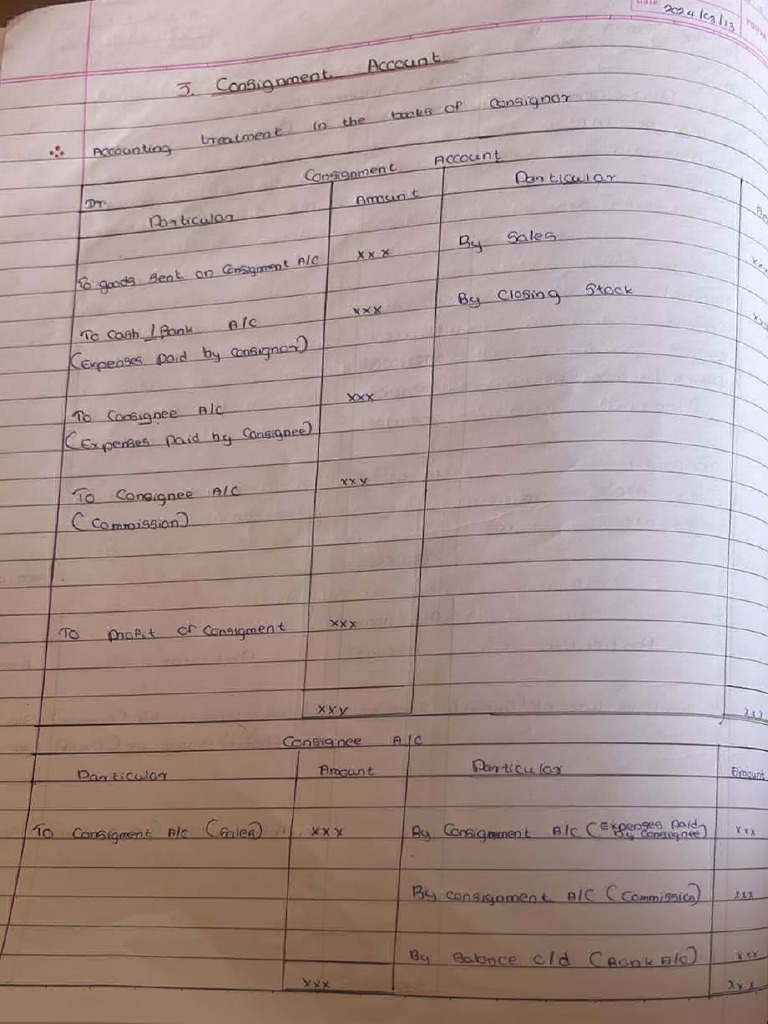 Date: 2024/03/13
3. Consignment Account
Accounting treatment in the books of consignor
Consignment Account
Dr.
Particular Amount Particular
To goods sent on Consignment A/C xxx By Sales
To Cash / Bank A/C xxx By Closing Stock
(Expenses paid by consignor)
To Consignee A/C xxx
(Expenses paid by Consignee)
To Consignee A/C xxx
(Commission)
To Profit of Consigment xxx
xxx xxx
Consignee A/C
Particular Amount Particular Amount
To Consigment A/c (Sales) xxx By Consignment A/C (Expenses paid by consignee) xxx
By consignment A/C (Commission) xxx
By Balance c/d (Bank A/c) xxx
xxx xxx